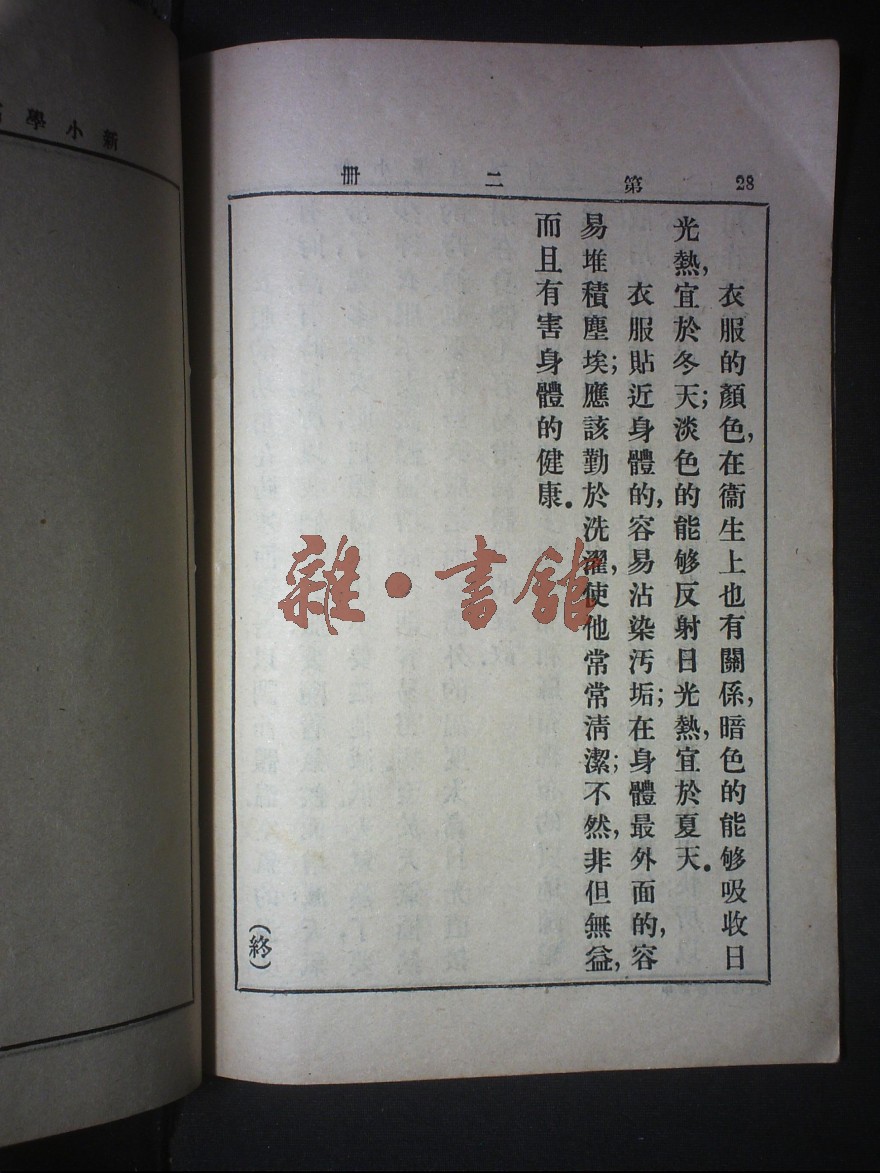 28 第二冊
衣服的顏色，在衞生上也有關係，暗色的能够吸收日
光熱，宜於冬天；淡色的能够反射日光熱，宜於夏天。
衣服貼近身體的，容易沾染汚垢；在身體最外面的，容
易堆積塵埃；應該勤於洗濯，使他常常清潔；不然，非但無益，
而且有害身體的健康。
(終)
雜·書館
新小學